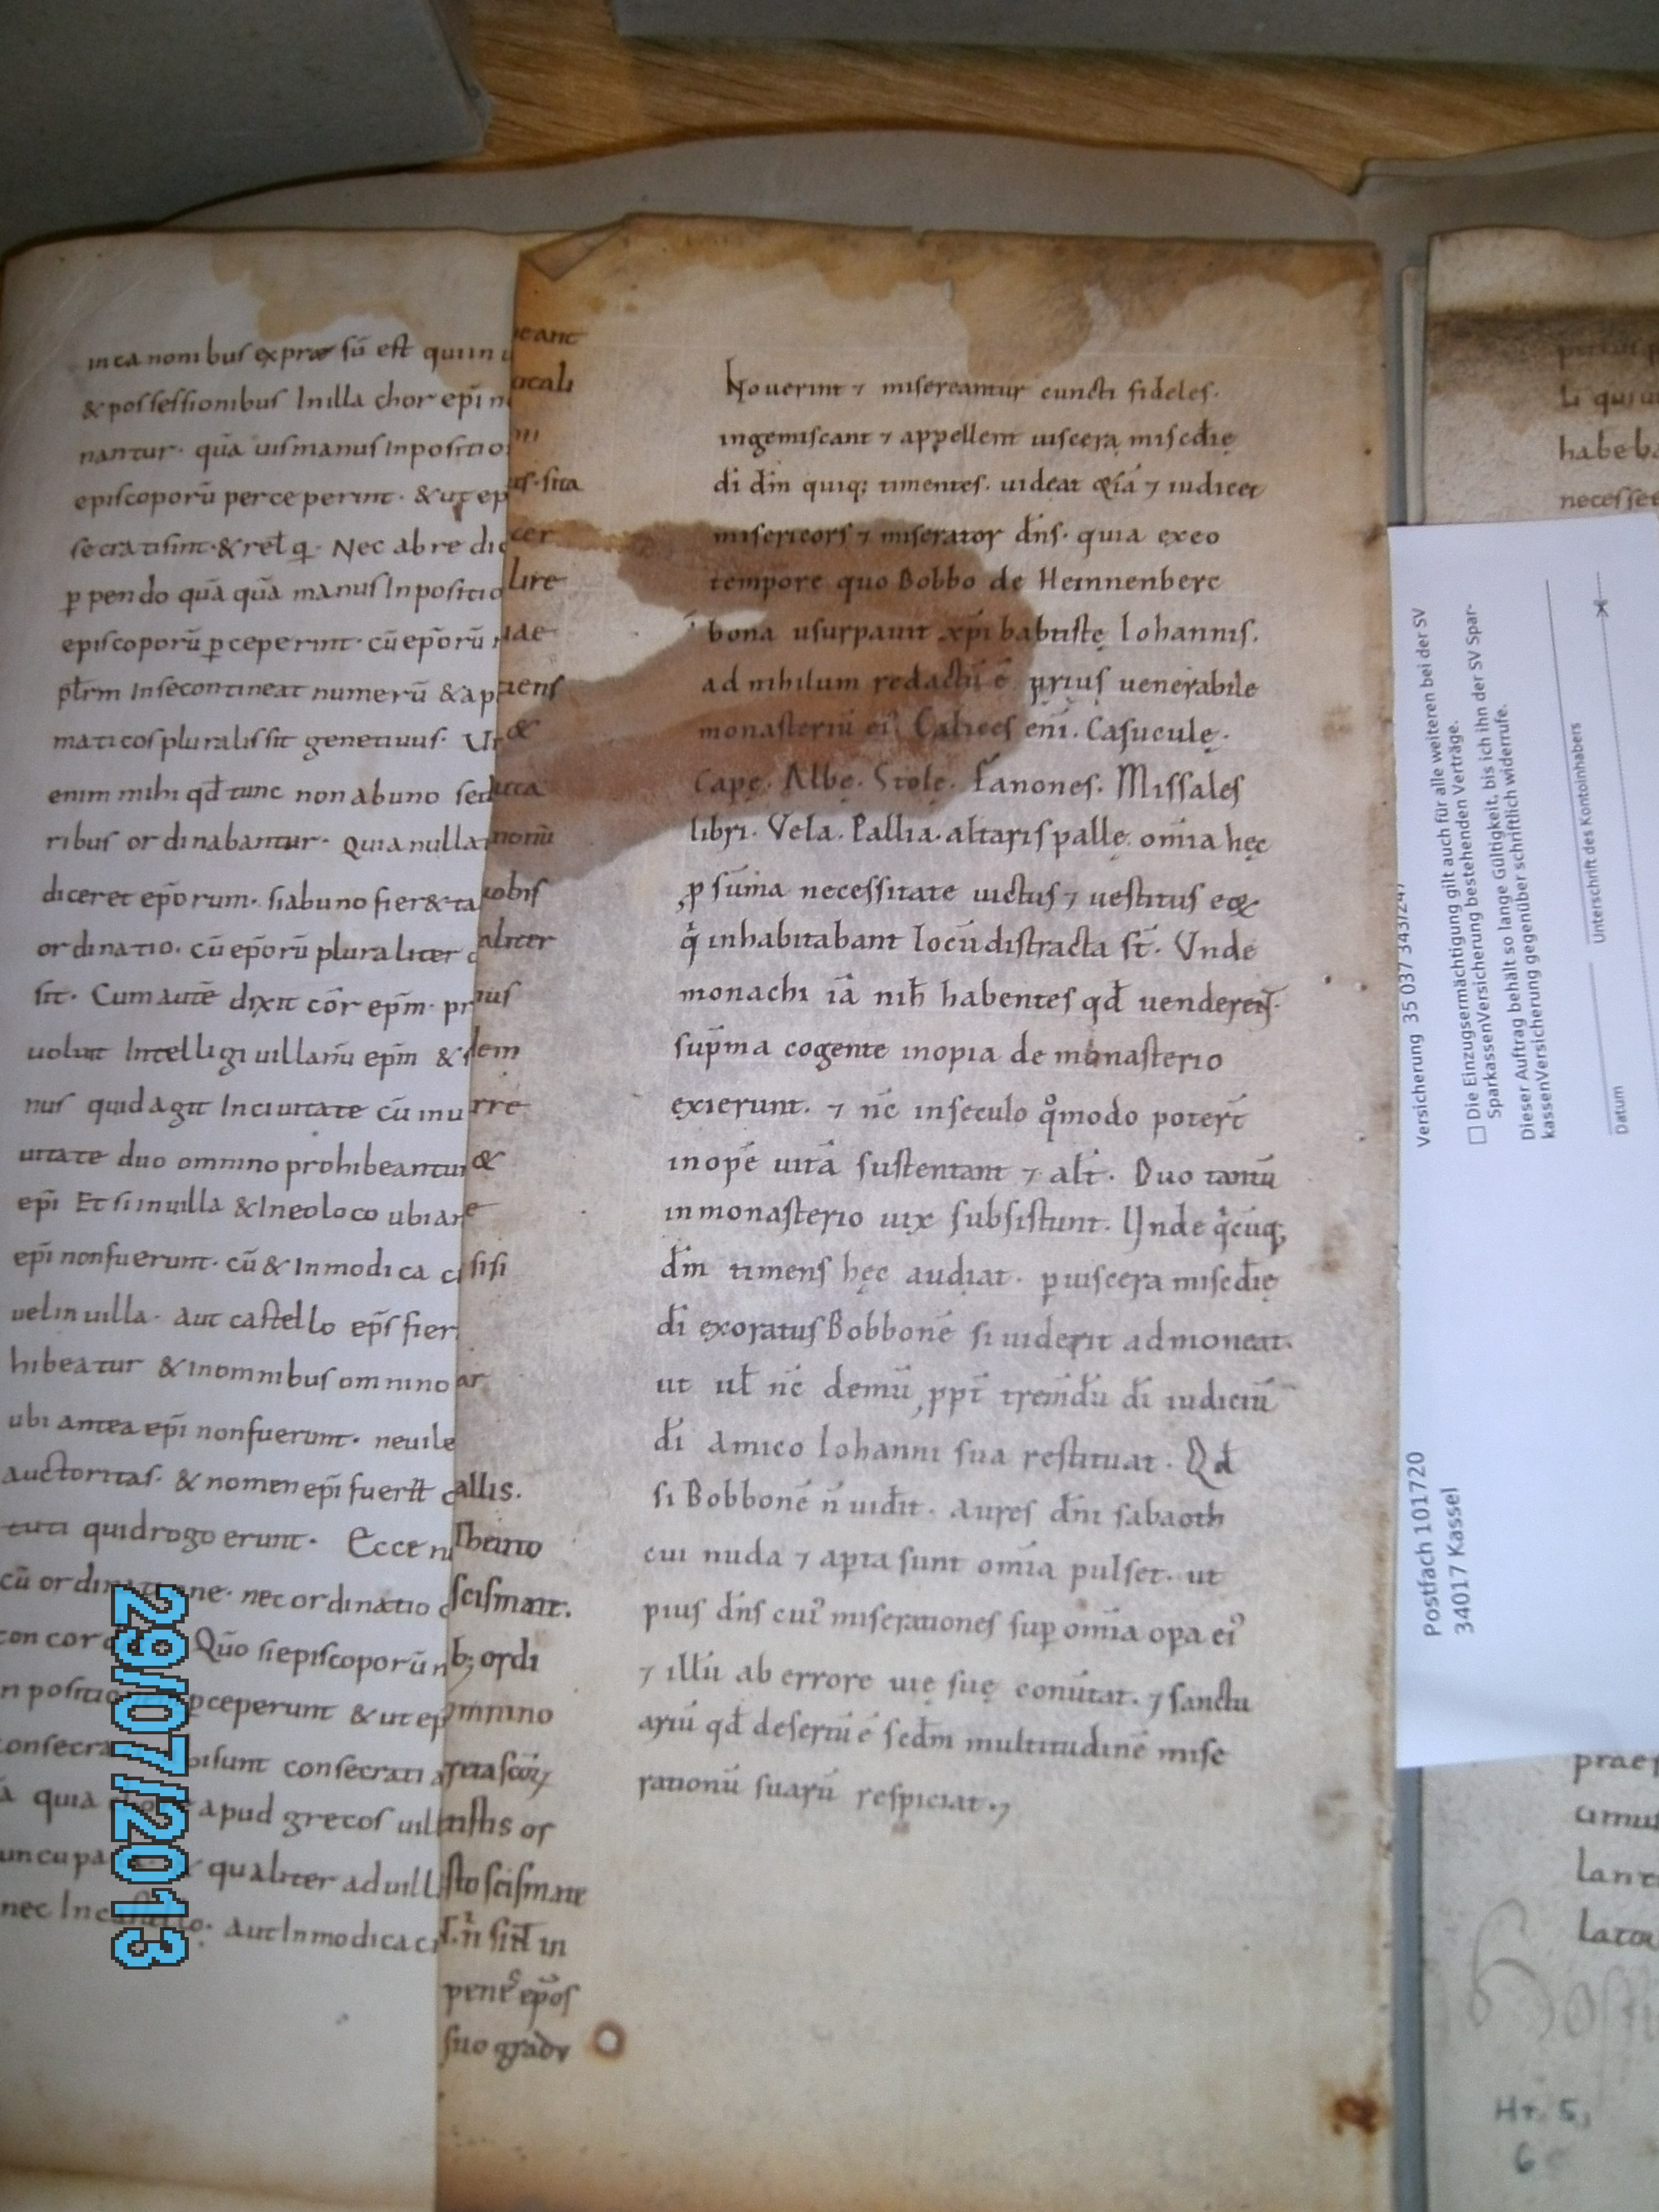 in canonibus expræssū est quiin
& possessionibus Inilla chor epi
nantur. quā uis manus Inpositio
episcoporū perceperint. & ut ep
secratisint. & relq. Nec ab re di
ppendo quā quā manus Inpositio
episcoporū pceperint. cū epōrū
ptrm Insecontineat numerū & ap
maticos pluralis sit genetiuus. Ut
enim mihi qđ tunc non abuno sed
ribus ordinabantur. Quia nulla
diceret epōrum. siabuno fier& ta
ordinatio. cū epōrū pluraliter
sit. Cum autē dixit cōr epm. pr
uoluit Intelligi uillanū epm &
nus quid agit In ciuitate cū inu
uitate duo omnino prohibeantur
epi Et si inuilla & Ineoloco ubi an
epi nonfuerunt. cū & Inmodica ci
uelin uilla. aut castello eps fier
hibeatur & Inomnibus omnino
ubi antea epi nonfuerunt. neuile
auctoritas. & nomen epi fuerit
quidrogo erunt. Ecce
cū ordinatione. nec ordinatio
Quo siepiscoporū
pceperunt & ut ep
sunt consecrati
quia apud grecos uil
qualiter ad uill
aut Inmodica ci
ocali
cer
lire
uae
tiens
&
nonū
uobis
aliter
nus
dem
rre
&
e
sisi
ar
allis.
scismate.
b; ordi
omnino
sto scismate
suo gradu
Nouerint ⁊ misereantur cuncti fideles.
ingemiscant ⁊ appellent uiscera misc̄dię
di dm̄ quiq; timentes. uideat &iā ⁊ iudicet
misericors ⁊ miserator dn̄s. quia exeo
tempore quo Bobbo de Heinnenberc
bona usurpauit xp̄i babtistę Iohannis.
ad nihilum redactū ē prius uenerabile
monasteriū ei'. Calices eni. Casuculę.
Capę. Albę. Stolę. Fanones. Missales
libri. Vela. Pallia. altaris pallę. om̄ia hęc
p sūma necessitate uictus ⁊ uestitus eo&
q̇ inhabitabant locū distracta st̄. Vnde
monachi iā nih̄ habentes qđ uenderent.
sup̄ma cogente inopia de monasterio
exierunt. ⁊ nc̄ inseculo q̊modo poter̄t
inopē uitā sustentant ⁊ alt̄. Duo tantū
inmonasterio uix subsistunt. Vnde q̇cūq;
dm̄ timens hęc audiat. p uiscera misc̄dię
di exoratus Bobbonē si uiderit admoneat.
ut ul̄ nc̄ demū ppt̄ tremdū di iudiciū
di amico Iohanni sua restituat. Qđ
si Bobbonē n̄ uidit. aures dn̄i sabaoth
cui nuda ⁊ apta sunt om̄ia pulset. ut
pius dn̄s cui' miserationes sup om̄ia opa ei'
⁊ illū ab errore uię suę conūtat. ⁊ sanctu
ariū qđ desertū ē sedm̄ multitudinē mise
rationū suarū respiciat.
habeba
necesse
prae
Hr. 5,
6
Versicherung 35 037 343/247
☐ Die Einzugsermächtigung gilt auch für alle weiteren bei der SV
SparkassenVersicherung bestehenden Verträge.
Dieser Auftrag behält so lange Gültigkeit, bis ich ihn der SV Spar-
kassenVersicherung gegenüber schriftlich widerrufe.
Datum
Unterschrift des Kontoinhabers
Postfach 101720
34017 Kassel
29/07/2013